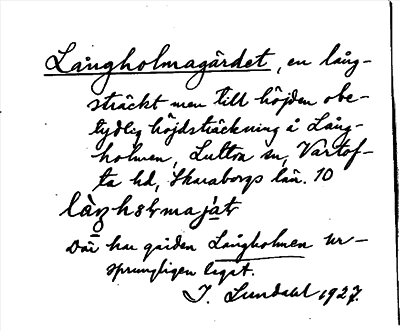 Långholmagärdet, en lång-
sträckt men till höjden obe-
tydlig höjdsträckning å Lång-
holmen, Luttra sn, Vartof-
ta hd, Skaraborgs län. 10
Där har gården Långholmen ur-
sprungligen legat.
J. Lundahl 1927.